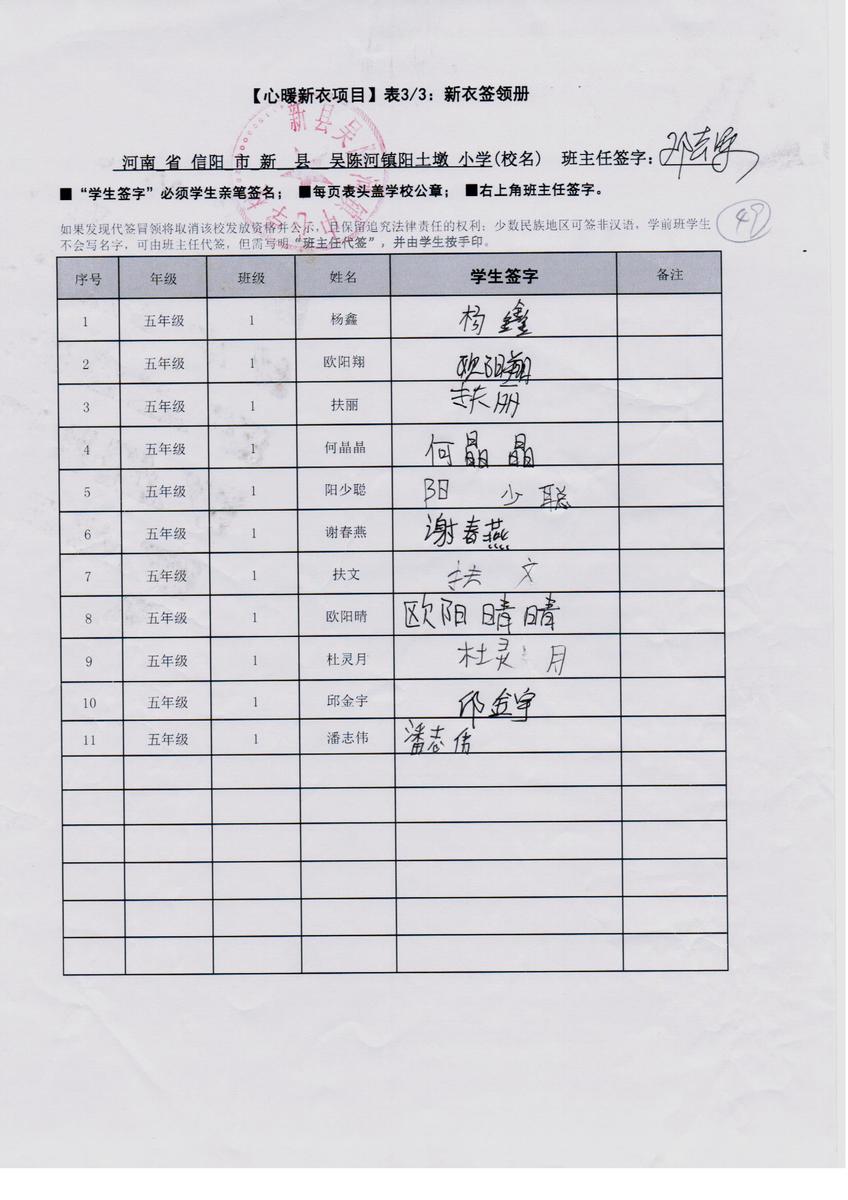 【心暖新衣项目】表3/3：新衣签领册
河南 省 信阳 市 新 县 吴陈河镇阳土墩 小学(校名) 班主任签字：
■“学生签字”必须学生亲笔签名； ■每页表头盖学校公章； ■右上角班主任签字。
49
如果发现代签冒领将取消该校发放资格并公示，且保留追究法律责任的权利；少数民族地区可签非汉语，学前班学生
不会写名字，可由班主任代签，但需写明“班主任代签”，并由学生按手印。
序号 年级 班级 姓名 学生签字 备注
1 五年级 1 杨鑫 杨鑫
2 五年级 1 欧阳翔 欧阳翔
3 五年级 1 扶丽 扶丽
4 五年级 1 何晶晶 何晶晶
5 五年级 1 阳少聪 阳少聪
6 五年级 1 谢春燕 谢春燕
7 五年级 1 扶文 扶文
8 五年级 1 欧阳晴 欧阳晴晴
9 五年级 1 杜灵月 杜灵月
10 五年级 1 邱金宇 邱金宇
11 五年级 1 潘志伟 潘志伟